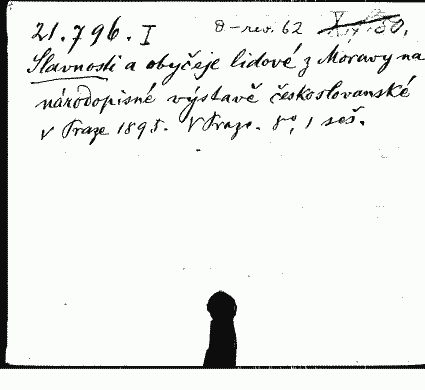 21.796. I 0-rev. 62
Slavnosti a obyčeje lidové z Moravy na
národopisné výstavě československé
v Praze 1895. V Praze. 8º, 1 seš.